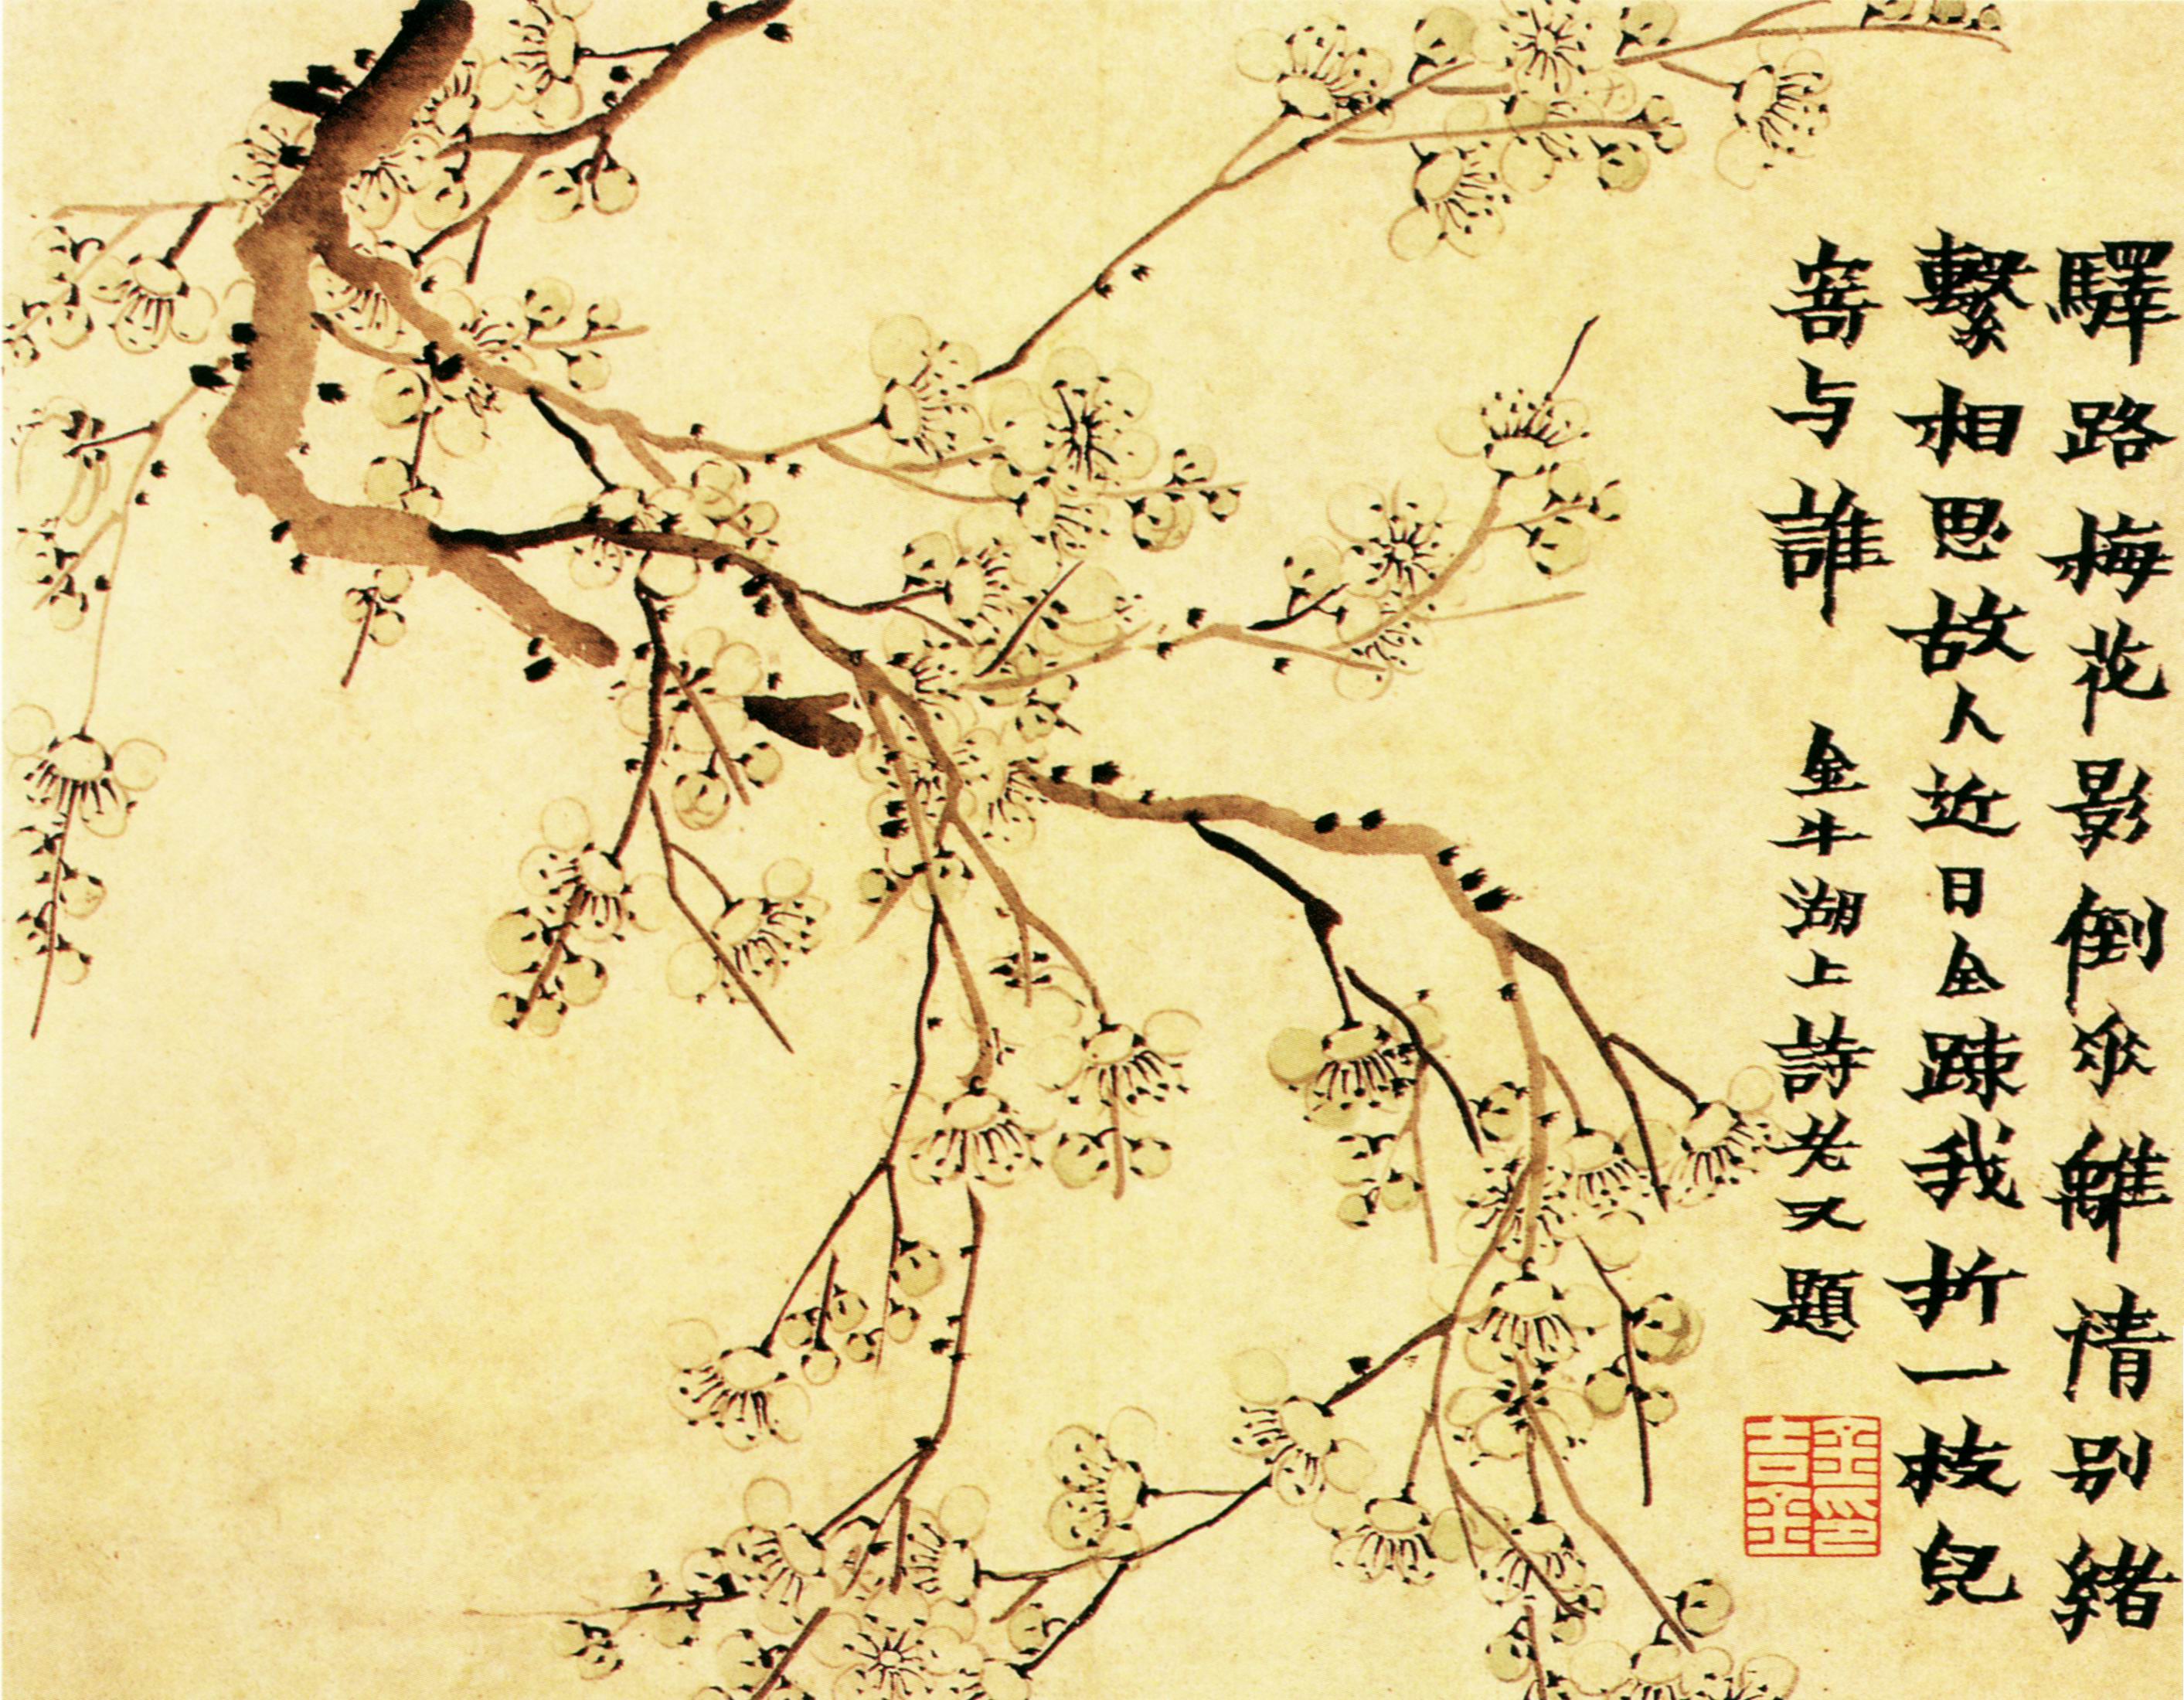 驛路梅花影倒𠂹離情別緒
繫相思故人近日全踈我折一枝兒
寄与誰 金牛湖上詩老又題
金吉金印